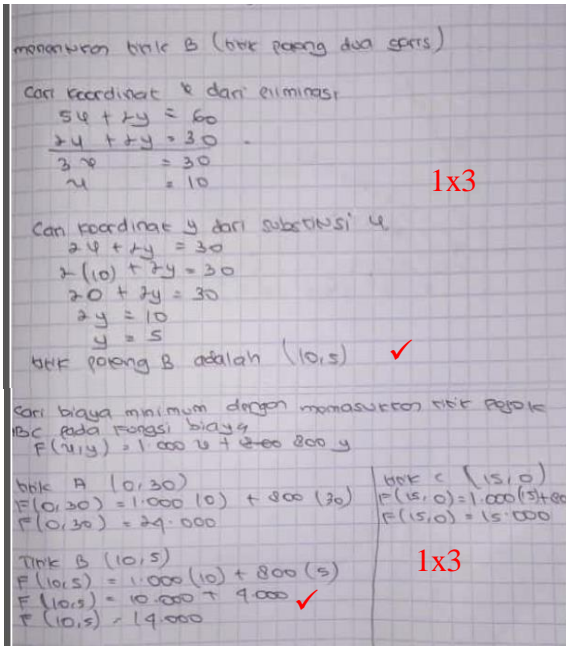 menentukan titik B (titik potong dua garis)
Cari koordinat x dari eliminasi
5x + 2y = 60
2x + 2y = 30 -
3x = 30
x = 10
1x3
Cari koordinat y dari substitusi x
2x + 2y = 30
2(10) + 2y = 30
20 + 2y = 30
2y = 10
y = 5
titik potong B adalah (10,5) ✓
Cari biaya minimum dengan memasukkan titik pojok
BC pada fungsi biaya
F(x,y) = 1.000 x + 800 y
titik A (0,30)
F(0,30) = 1.000 (0) + 800 (30)
F(0,30) = 24.000
titik C (15,0)
F(15,0) = 1.000(15) + 80
F(15,0) = 15.000
Titik B (10,5)
F(10,5) = 1.000 (10) + 800 (5)
F(10,5) = 10.000 + 4.000 ✓
F(10,5) = 14.000
1x3